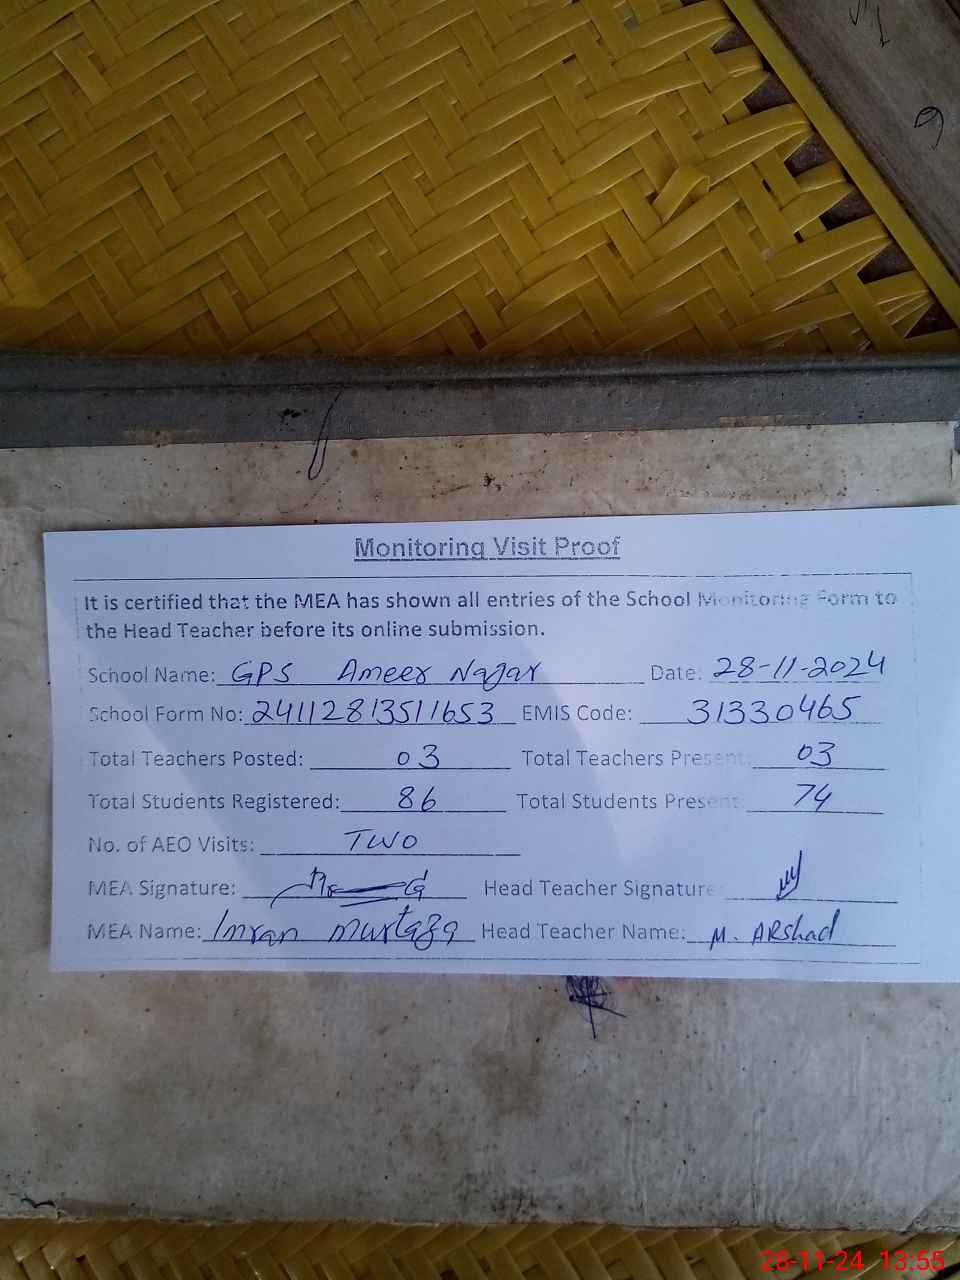 Monitoring Visit Proof
It is certified that the MEA has shown all entries of the School Monitoring Form to
the Head Teacher before its online submission.
School Name: GPS Ameer Nagar Date: 28-11-2024
School Form No: 24112813511653 EMIS Code: 31330465
Total Teachers Posted: 03 Total Teachers Present: 03
Total Students Registered: 86 Total Students Present: 74
No. of AEO Visits: TWO
MEA Signature: Head Teacher Signature:
MEA Name: Imran Murtaza Head Teacher Name: M. ARshad
28-11-24 13:55